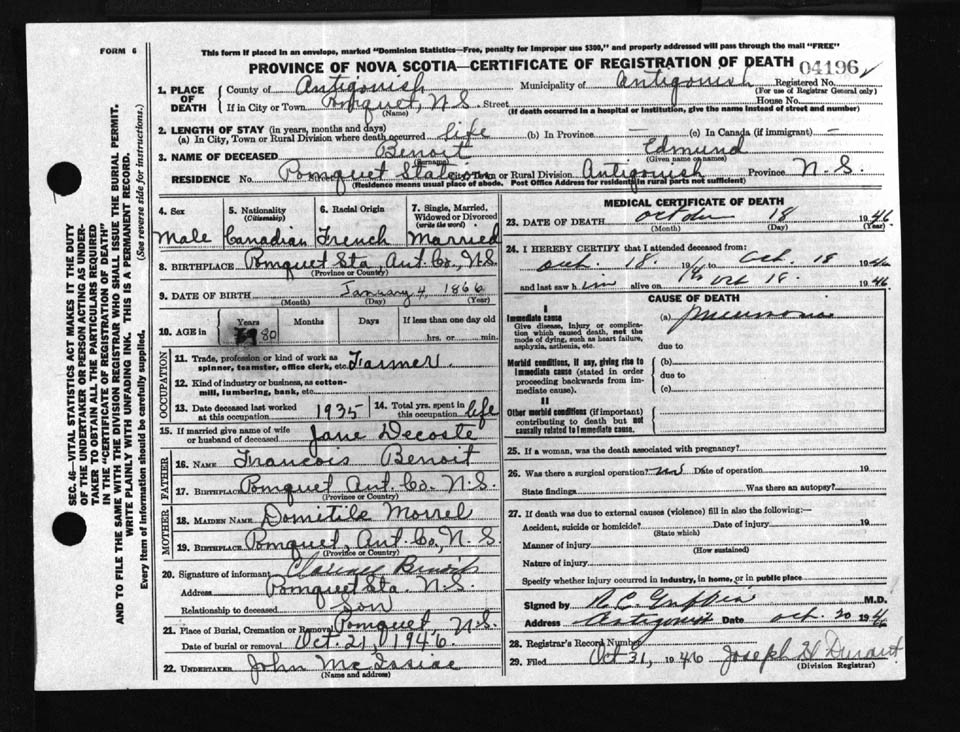 FORM 6
This form if placed in an envelope, marked "Dominion Statistics—Free, penalty for improper use $300," and properly addressed will pass through the mail "FREE"
PROVINCE OF NOVA SCOTIA—CERTIFICATE OF REGISTRATION OF DEATH 04196
SEC. 46—VITAL STATISTICS ACT MAKES IT THE DUTY
OF THE UNDERTAKER OR PERSON ACTING AS UNDER-
TAKER TO OBTAIN ALL THE PARTICULARS REQUIRED
IN THE "CERTIFICATE OF REGISTRATION OF DEATH"
AND TO FILE THE SAME WITH THE DIVISION REGISTRAR WHO SHALL ISSUE THE BURIAL PERMIT.
WRITE PLAINLY WITH UNFADING INK. THIS IS A PERMANENT RECORD.
Every item of information should be carefully supplied. (See reverse side for instructions.)
1. PLACE OF DEATH County of Antigonish Municipality of Antigonish Registered No.
(For use of Registrar General only)
If in City or Town Pomquet, N.S. Street House No.
(Name) (If death occurred in a hospital or institution, give the name instead of street and number)
2. LENGTH OF STAY (in years, months and days)
(a) In City, Town or Rural Division where death occurred life (b) In Province — (c) In Canada (if immigrant) —
3. NAME OF DECEASED Benoit Edmund
(Surname) (Given name or names)
RESIDENCE No. Pomquet Station Street City, Town or Rural Division Antigonish Province N.S.
(Residence means usual place of abode. Post Office Address for residents in rural parts not sufficient)
4. Sex Male
5. Nationality (Citizenship) Canadian
6. Racial Origin French
7. Single, Married, Widowed or Divorced (write the word) Married
8. BIRTHPLACE Pomquet Sta. Ant. Co., N.S.
(Province or Country)
9. DATE OF BIRTH January 4, 1866
(Month) (Day) (Year)
10. AGE in Years 80 Months Days If less than one day old
hrs. or min.
OCCUPATION
11. Trade, profession or kind of work as spinner, teamster, office clerk, etc. Farmer
12. Kind of industry or business, as cotton-mill, lumbering, bank, etc.
13. Date deceased last worked at this occupation 1935 14. Total yrs. spent in this occupation life
15. If married give name of wife or husband of deceased Jane Decoste
FATHER
16. NAME Francois Benoit
17. BIRTHPLACE Pomquet Ant. Co. N.S.
(Province or Country)
MOTHER
18. MAIDEN NAME Domitile Morrel
19. BIRTHPLACE Pomquet, Ant. Co., N.S.
(Province or Country)
20. Signature of informant Clarence Benoit
Address Pomquet Sta. N.S.
Relationship to deceased Son
21. Place of Burial, Cremation or Removal Pomquet, N.S.
Date of burial or removal Oct. 21, 1946
22. UNDERTAKER John McIsaac
(Name and address)
MEDICAL CERTIFICATE OF DEATH
23. DATE OF DEATH October 18 1946
(Month) (Day) (Year)
24. I HEREBY CERTIFY that I attended deceased from:
Oct. 18. to Oct. 18 1946
and last saw h im alive on Oct 18 1946
CAUSE OF DEATH
Immediate cause
Give disease, injury or complication which caused death, not the mode of dying, such as heart failure, asphyxia, asthenia, etc.
(a) pneumonia
due to
Morbid conditions, if any, giving rise to immediate cause (stated in order proceeding backwards from immediate cause).
(b)
due to
(c)
Other morbid conditions (if important) contributing to death but not causally related to immediate cause.
25. If a woman, was the death associated with pregnancy?
26. Was there a surgical operation? no Date of operation 19
State findings Was there an autopsy?
27. If death was due to external causes (violence) fill in also the following:—
Accident, suicide or homicide? Date of injury 19
(State which)
Manner of injury
(How sustained)
Nature of injury
Specify whether injury occurred in industry, in home, or in public place
Signed by M.D.
Address Antigonish Date Oct. 20 1946
28. Registrar's Record Number
29. Filed Oct 31, 1946 Joseph H Durant
(Division Registrar)